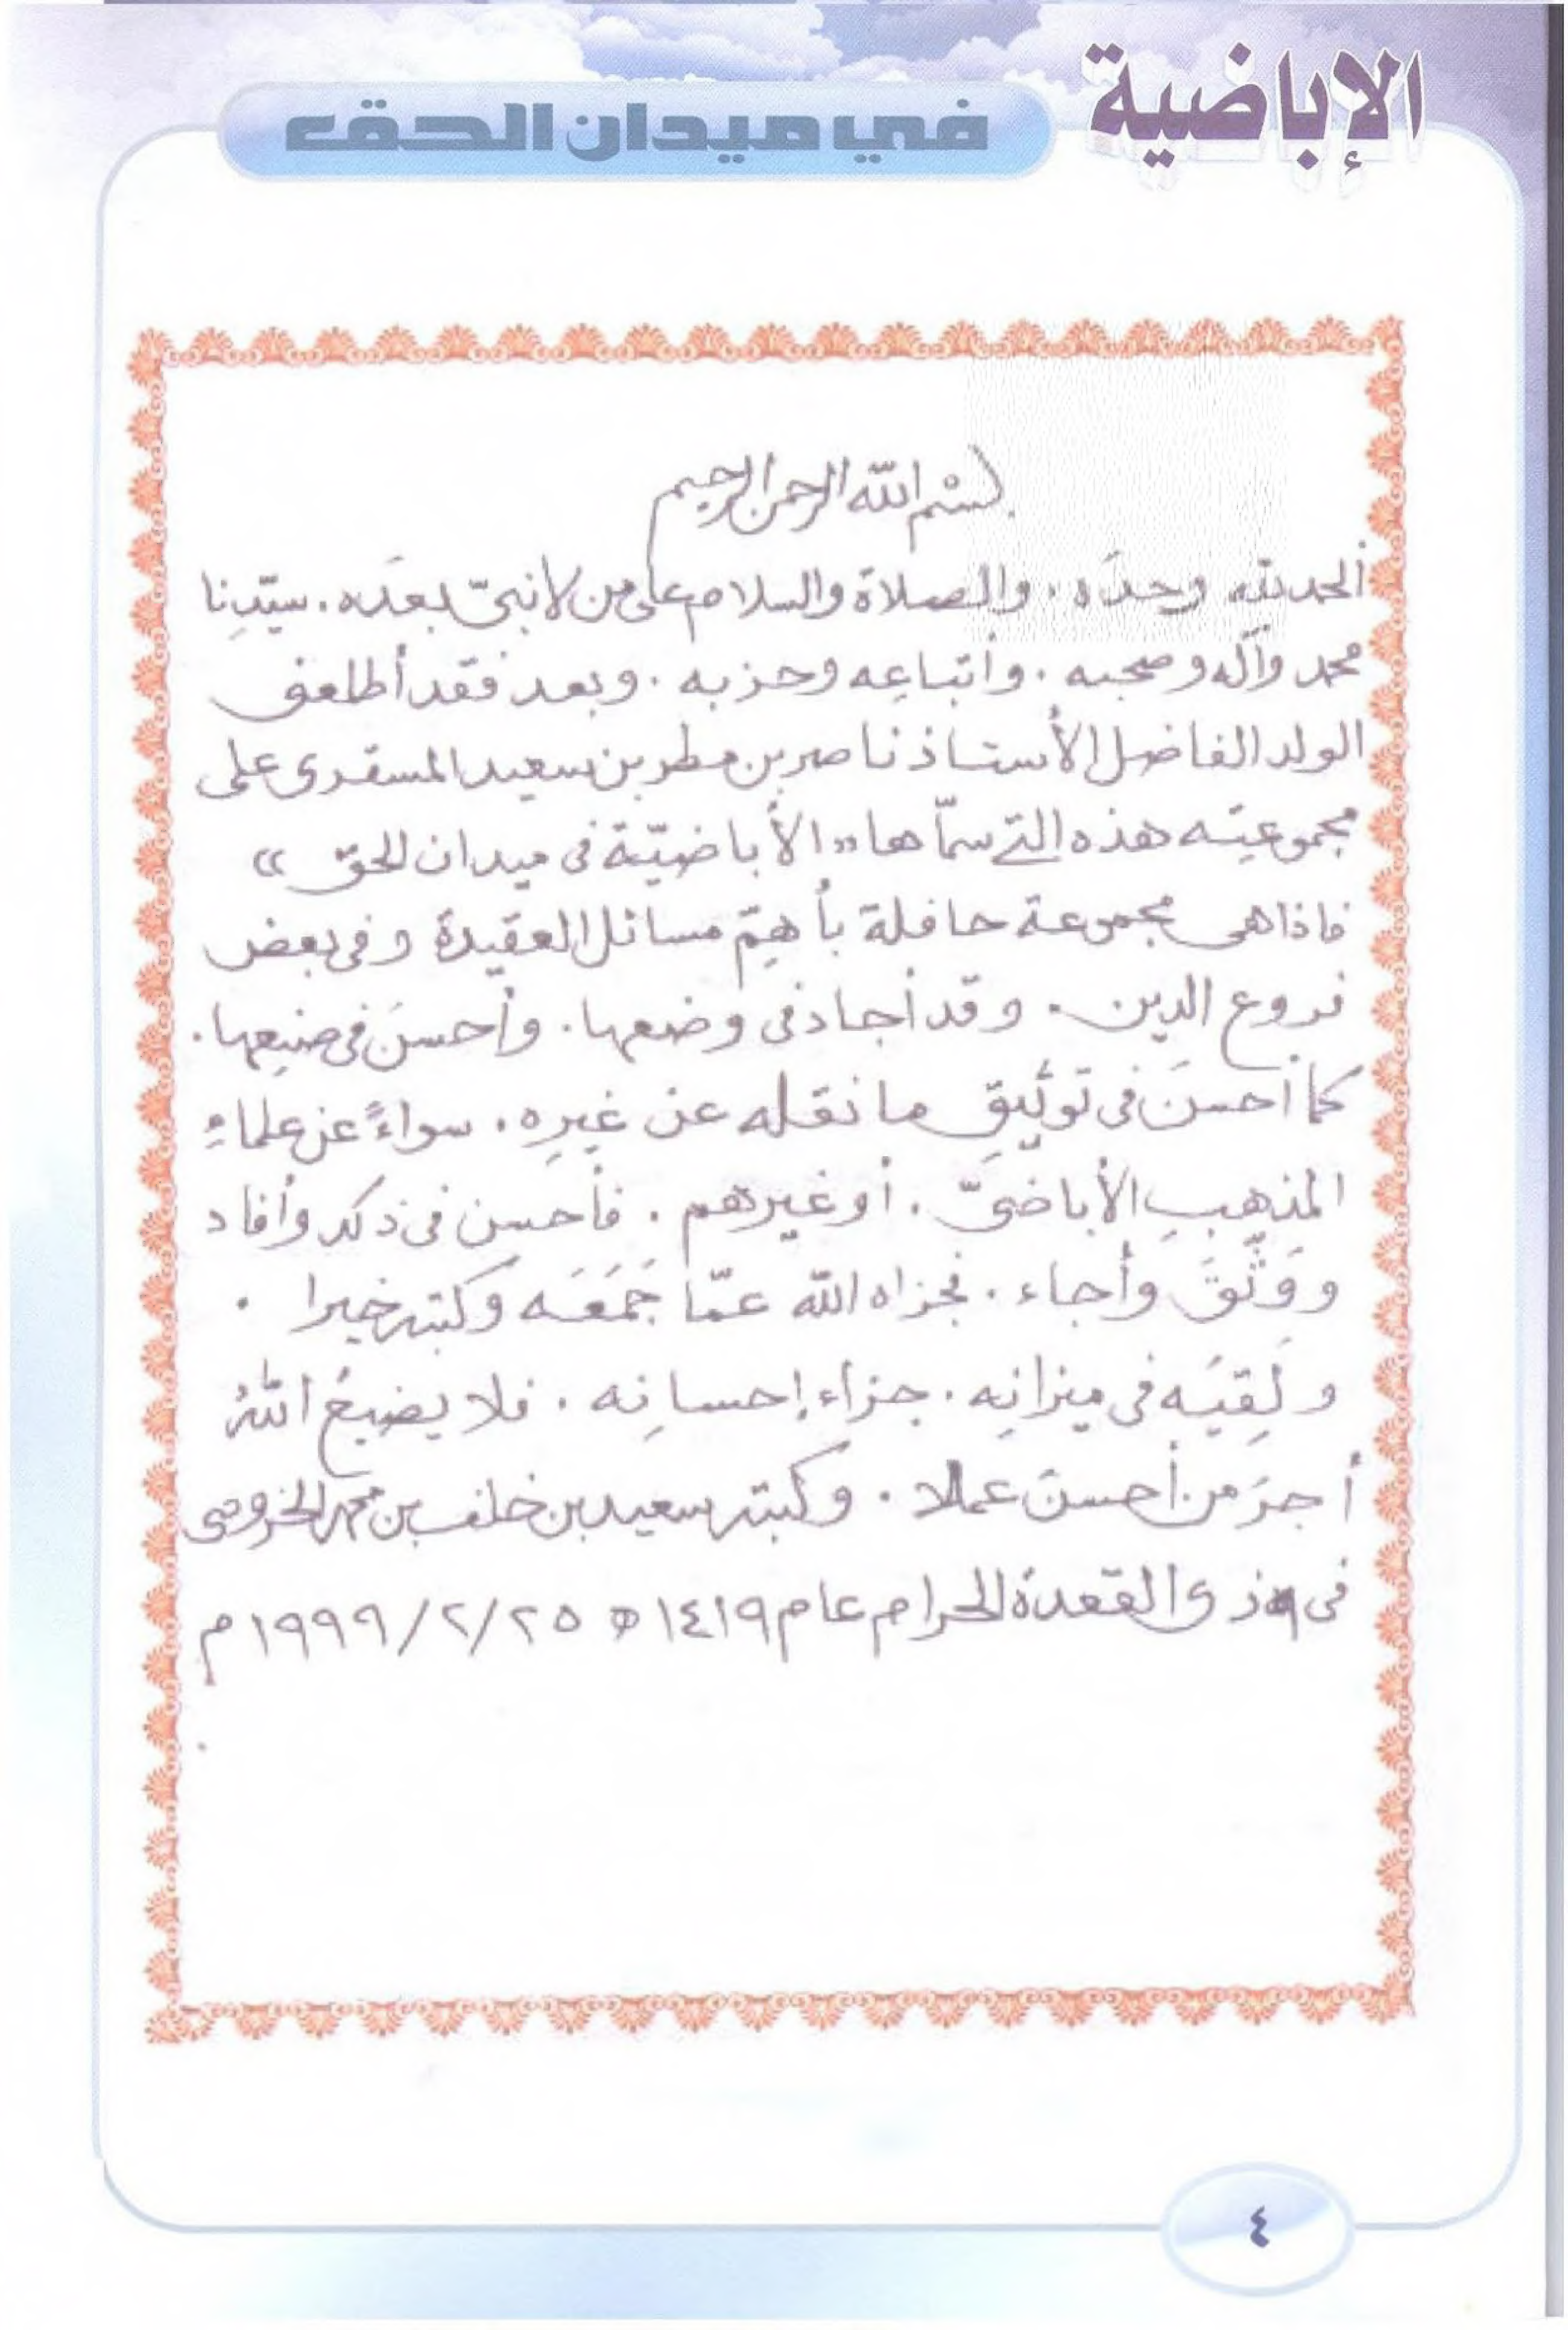 الإباضية
في ميدان الحق
بسْم الله الرحمن الرحيم
ألحمد لله وحدَه . والصلاة والسلام على من لا نبيّ بعدَه . سيّدِنا
محمد وآله وصحبه . وأتباعِه وحزبه . وبعد فقد أطلعنى
الولد الفاضل الأستاذ ناصر بن مطر بن سعيد المسقرى على
مجموعتِه هذه التى سمّاها «الأباضيّة فى ميدان الحق»
فاذا هى مجموعة حافلة بأهمِّ مسائل العقيدة وفى بعض
فروع الدين . وقد أجاد فى وضعها . وأحسنَ فى صنيعِها .
كما أحسنَ فى توثيقِ ما نقله عن غيرِه . سواءً عن علماءِ
المذهبِ الأباضىّ . أو غيرهم . فأحسن فى ذلك وأفاد
ووَثَّقَ وأجاد . فجزاه الله عمّا جَمَعَه وكتبه خيرا .
ولَقِيَه فى ميزانِه . جزاء إحسانِه . فلا يضيعُ اللهُ
أجرَ من أحسنَ عملا . وكتبه سعيد بن خلف بن محمد الخروصى
فى ٩ ذى القعدة الحرام عام ١٤١٩ هـ ٢٥/٢/١٩٩٩م
٤